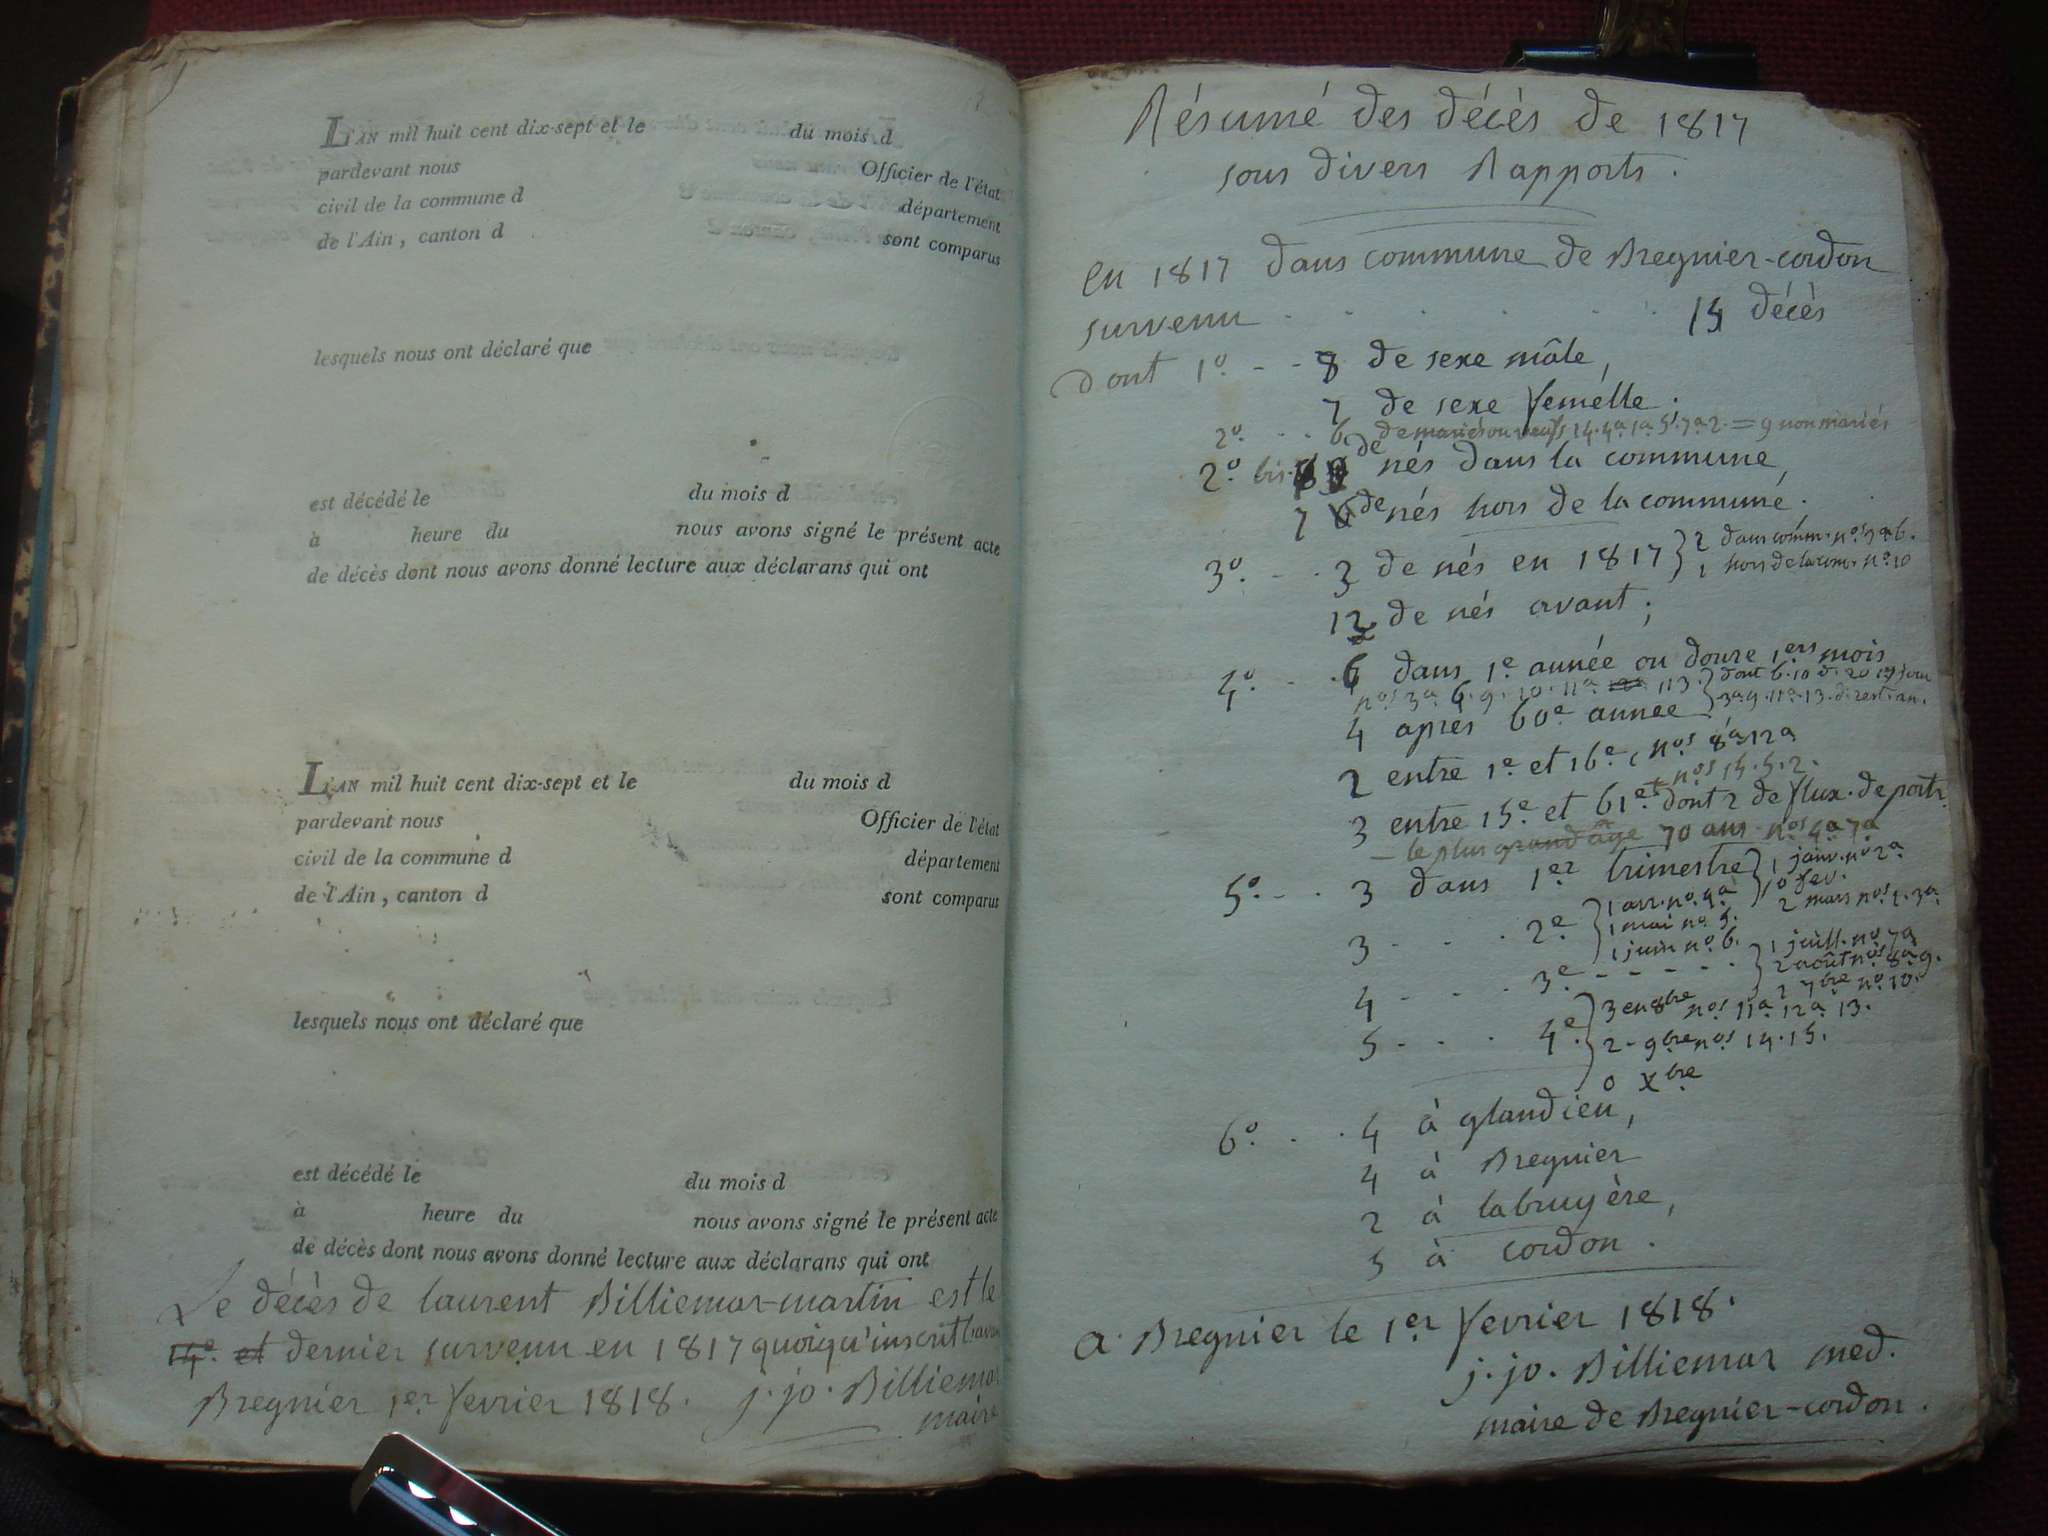 L'AN mil huit cent dix-sept et le du mois d
pardevant nous Officier de l'état
civil de la commune d département
de l'Ain, canton d sont comparus
lesquels nous ont déclaré que
est décédé le du mois d
à heure du nous avons signé le présent acte
de décès dont nous avons donné lecture aux déclarans qui ont
L'AN mil huit cent dix-sept et le du mois d
pardevant nous Officier de l'état
civil de la commune d département
de l'Ain, canton d sont comparus
lesquels nous ont déclaré que
est décédé le du mois d
à heure du nous avons signé le présent acte
de décès dont nous avons donné lecture aux déclarans qui ont
Le décès de laurent Billiemaz-martin est le
dernier survenu en 1817 quoiqu'inscrit
Bregnier 1er fevrier 1818. j. jo. Billiemaz
maire
Résumé des décès de 1817
sous divers Rapports.
en 1817 dans commune de Bregnier-cordon
survenu . . . . . . 15 décès
dont 1º. - - 8 de sexe mâle,
7 de sexe femelle.
2º. . . 6. de mariés ou veufs 14. 4a 1a 5. 7a 2. = 9 non mariés
2º. bis. 8 de nés dans la commune,
7 de nés hors de la commune.
3º. - - 3 de nés en 1817 } 2 dans comm. nos 9 et 6.
1 hors de la com. nº. 10
12 de nés avant;
4º. - - 6 dans 1e année ou douze 1ers mois
nos 3a. 6. 9. 10. 11a. 13.
3a 9. 11a. 13.
4 après 60e année
2 entre 1e et 16e, nos 8a 12a
3 entre 15e et 61e dont 2 de flux. de poitr. nos 15. 5. 2.
- le plus grand âge 70 ans nos 4a 7a
5º. - - 3 dans 1er trimestre } 1 janv. nº 2a
0 fev.
2 mars nos 1. 3a.
3 . . . . 2e { 1 avr. nº. 4a
1 mai nº 5.
1 juin nº 6.
4 . . . . 3e - - - - - } 1 juill. nº 7a
2 août nos 8a 9.
1 7bre nº 10.
5 - . . . 4e { 3 en 8bre nos 11a. 12a 13.
2 - 9bre nos 14. 15.
0 Xbre
6º. . . . 4 à glandieu,
4 à Bregnier
2 à labruyère,
5 à cordon.
a Bregnier le 1er fevrier 1818.
j. jo. Billiemaz med.
maire de Bregnier-cordon.